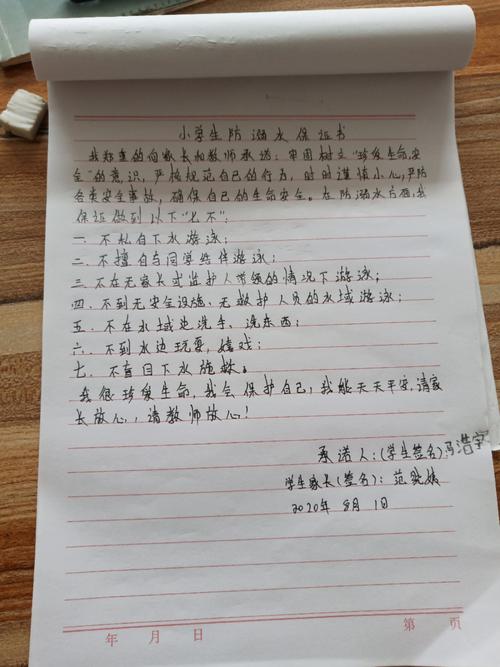 小学生防溺水保证书
我郑重的向家长和教师承诺：牢固树立“珍爱生命,安
全”的意识，严格规范自己的行为，时时谨慎小心,严防
各类安全事故，确保自己的生命安全。在防溺水方面,我
保证做到以下“七不”：
一、不私自下水游泳；
二、不擅自与同学结伴游泳；
三、不在无家长或监护人带领的情况下游泳；
四、不到无安全设施、无救护人员的水域游泳；
五、不在水域边洗手、洗东西；
六、不到水边玩耍、嬉戏；
七、不盲目下水施救。
我很珍爱生命，我会保护自己，我能天天平安,请家
长放心，请教师放心！
承诺人：(学生签名)冯浩宇
学生家长(签名)：范
2020年8月1日
年 月 日 第 页